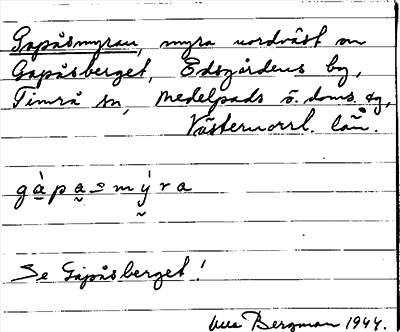 Gapåsmyran, myra nordväst om
Gapåsberget, Edsgårdens by,
Timrå sn, Medelpads ö. doms. tg,
Västernorrl. län.
gàpa = mýra
Se Gapåsberget!
Bergman 1944.